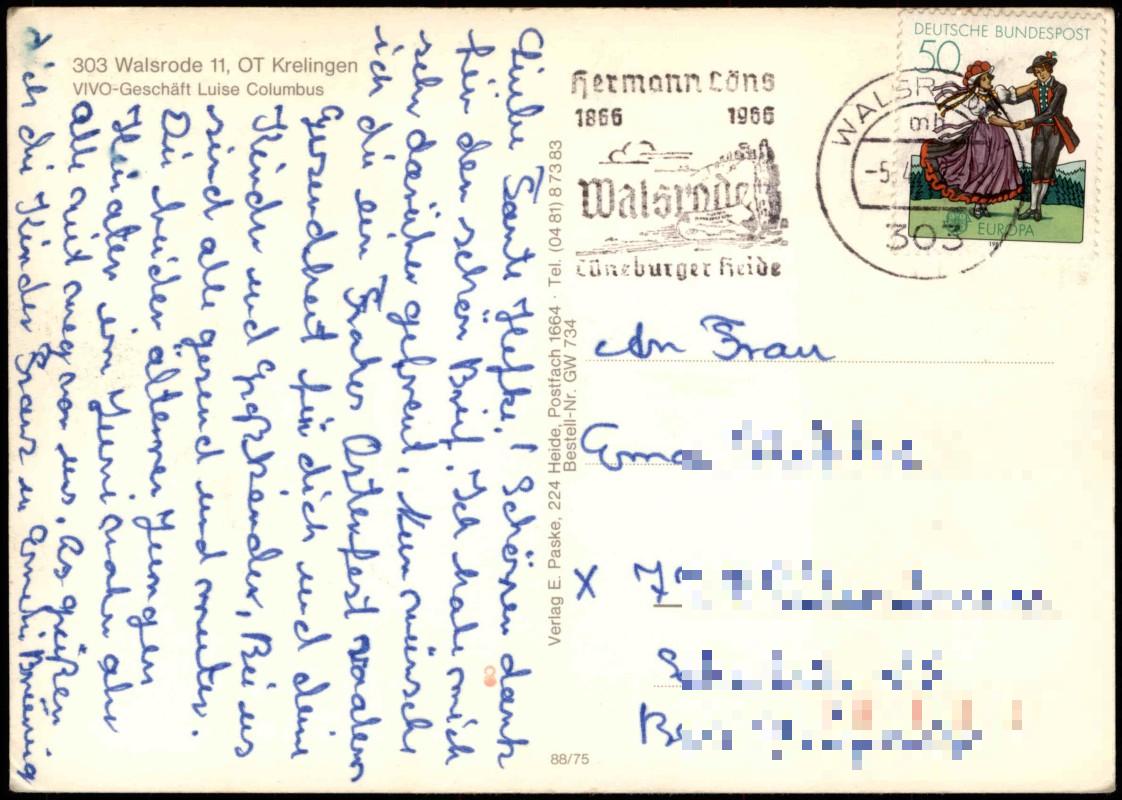 303 Walsrode 11, OT Krelingen
VIVO-Geschäft Luise Columbus
Liebe Tante ! Schönen dank
für den schön Brief. Ich habe mich
sehr darüber gefreut. Nun wünsch
ich dir ein Frohes Osterfest voralem
Gesundheit für dich und deine
Kinder und Großkinder, Bei uns
sind alle gesund und munter.
Die beiden älteren Jungen
Heiraten im Juni
alle mit weg von uns. Es grüßen
dich die Kinder Franz u
Verlag E. Paske, 224 Heide, Postfach 1664 · Tel. (04 81) 8 73 83
Bestell-Nr. GW 734
88/75
Hermann Löns
1866 1966
Walsrode
Lüneburger Heide
WALSR
mb
-5.4
303
DEUTSCHE BUNDESPOST
50
EUROPA
1981
An Frau
X